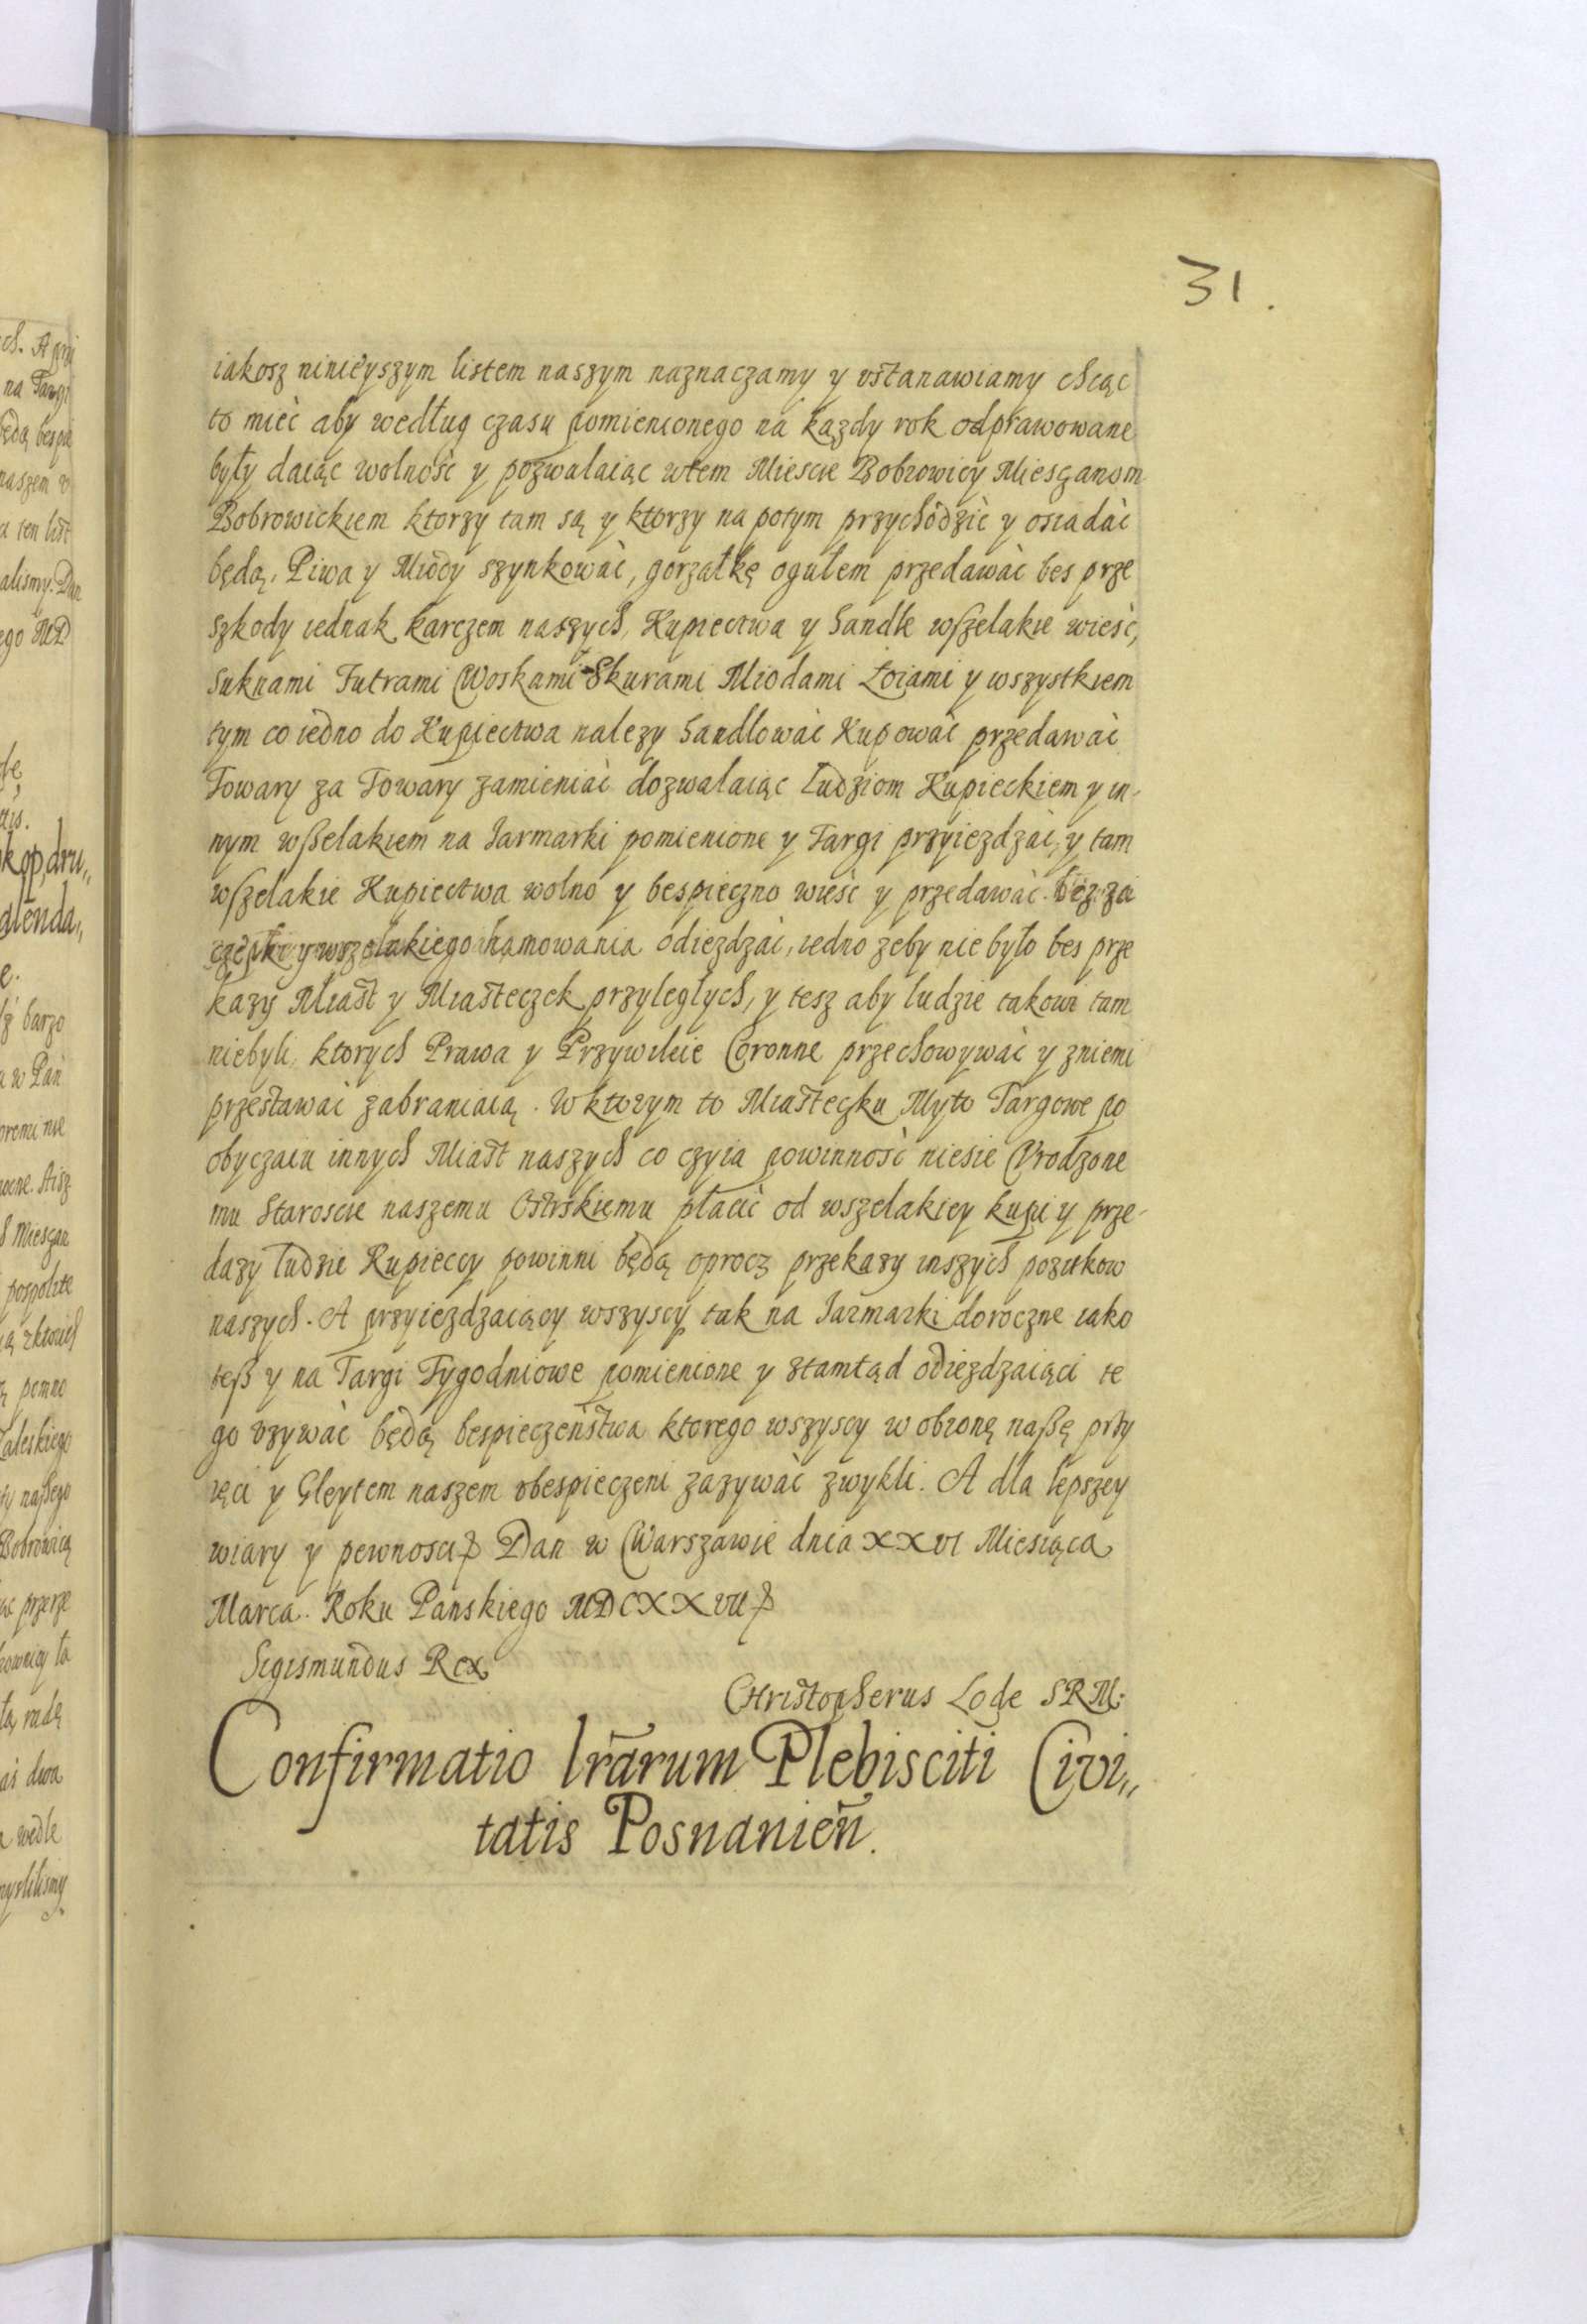 31.
iakosz ninieyszym listem naszym naznaczamy y vstanawiamy chcąc
to mieć aby według czasu pomienionego na kazdy rok odprawowane
były daiąc wolność y pozwalaiąc wtem Miescie Bobrowicy Miesczanom
Bobrowickiem ktorzy tam są y ktorzy na potym przychodzić y osiadać
będą, Piwa y Miody szynkować, gorzałkę ogułem przedawać bes prze
szkody iednak karczem naszych, Kupiectwa y handle wszelakie wieść,
suknami Futrami Woskami Skurami Miodami Łoiami y wszystkiem
tym co iedno do Kupiectwa nalezy handlować Kupować przedawać
Towary za Towary zamieniać dozwalaiąc ludziom Kupieckiem y in-
nym wßelakiem na Iarmarki pomienione y Targi przyiezdzać, y tam
wszelakie Kupiectwa wolno y bespieczno wieść y przedawać. bez za
czepki y wszelakiego hamowania odiezdzać, iedno zeby nie było bes prze
kazy Miast y Miasteczek przyległych, y tesz aby ludzie takowi tam
niebyli, ktorych Prawa y Przywileie Coronne przechowywać y zniemi
przestawać zabraniaią. W ktorym to Miasteczku Myto Targowe po
obyczaiu innych Miast naszych co czyia powinność niesie Vrodzone
mu Staroscie naszemu Ostrskiemu płacić od wszelakiey kupi y prze-
dazy ludzie Kupieccy powinni będą oprocz przekazy inszych pozitkow
naszych. A przyiezdzaiący wszyscy tak na Iarmarki doroczne iako
teß y na Targi Tygodniowe pomienione y ztamtąd odiezdzaiąci te
go vzywać będą bespieczeństwa ktorego wszyscy w obronę naßę przy
ięci y Gleytem naszem obespieczeni zazywać zwykli. A dla lepszey
wiary y pewnosci Dan w Warszawie dnia XXVI Miesiąca
Marca. Roku Panskiego MDCXXVII
Sigismundus Rex
Christopherus Lode SRM:
Confirmatio lrarum Plebisciti Civi„
tatis Posnanien.